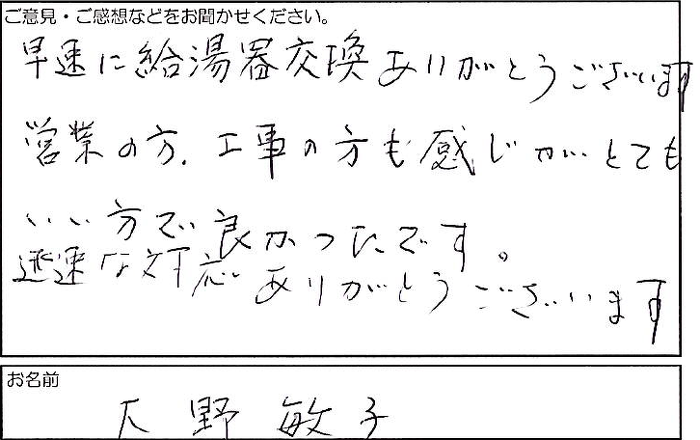 ご意見・ご感想などをお聞かせください。
早速に給湯器交換ありがとうございます
営業の方、工事の方も感じがとても
いい方で良かったです。
迅速な対応ありがとうございます
お名前
天野 敏子